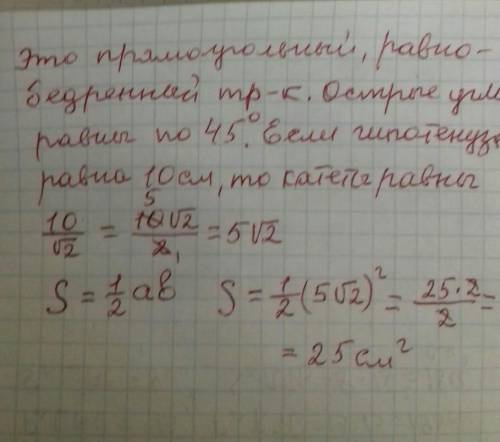 Это прямоугольный, равно-
бедренный тр-к. Острые угл
равны по 45°. Если гипотенуз
равна 10 см, то катеты равны
10/√2 = 10√2/2 = 5√2
S = 1/2 ab S = 1/2 (5√2)² = 25·2/2 =
= 25 см²